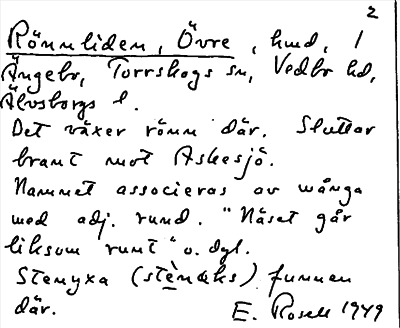 2
Rönnliden, Övre, hmd, 1
Ängebo, Torrskogs sn, Vedbo hd,
Älvsborgs l.
Det växer rönn där. Sluttar
brant mot Askesjö.
Namnet associeras av många
med adj. rund. "Näset går
liksom runt" o. dyl.
Stenyxa (stènaks) funnen
där. E. Rosell 1949